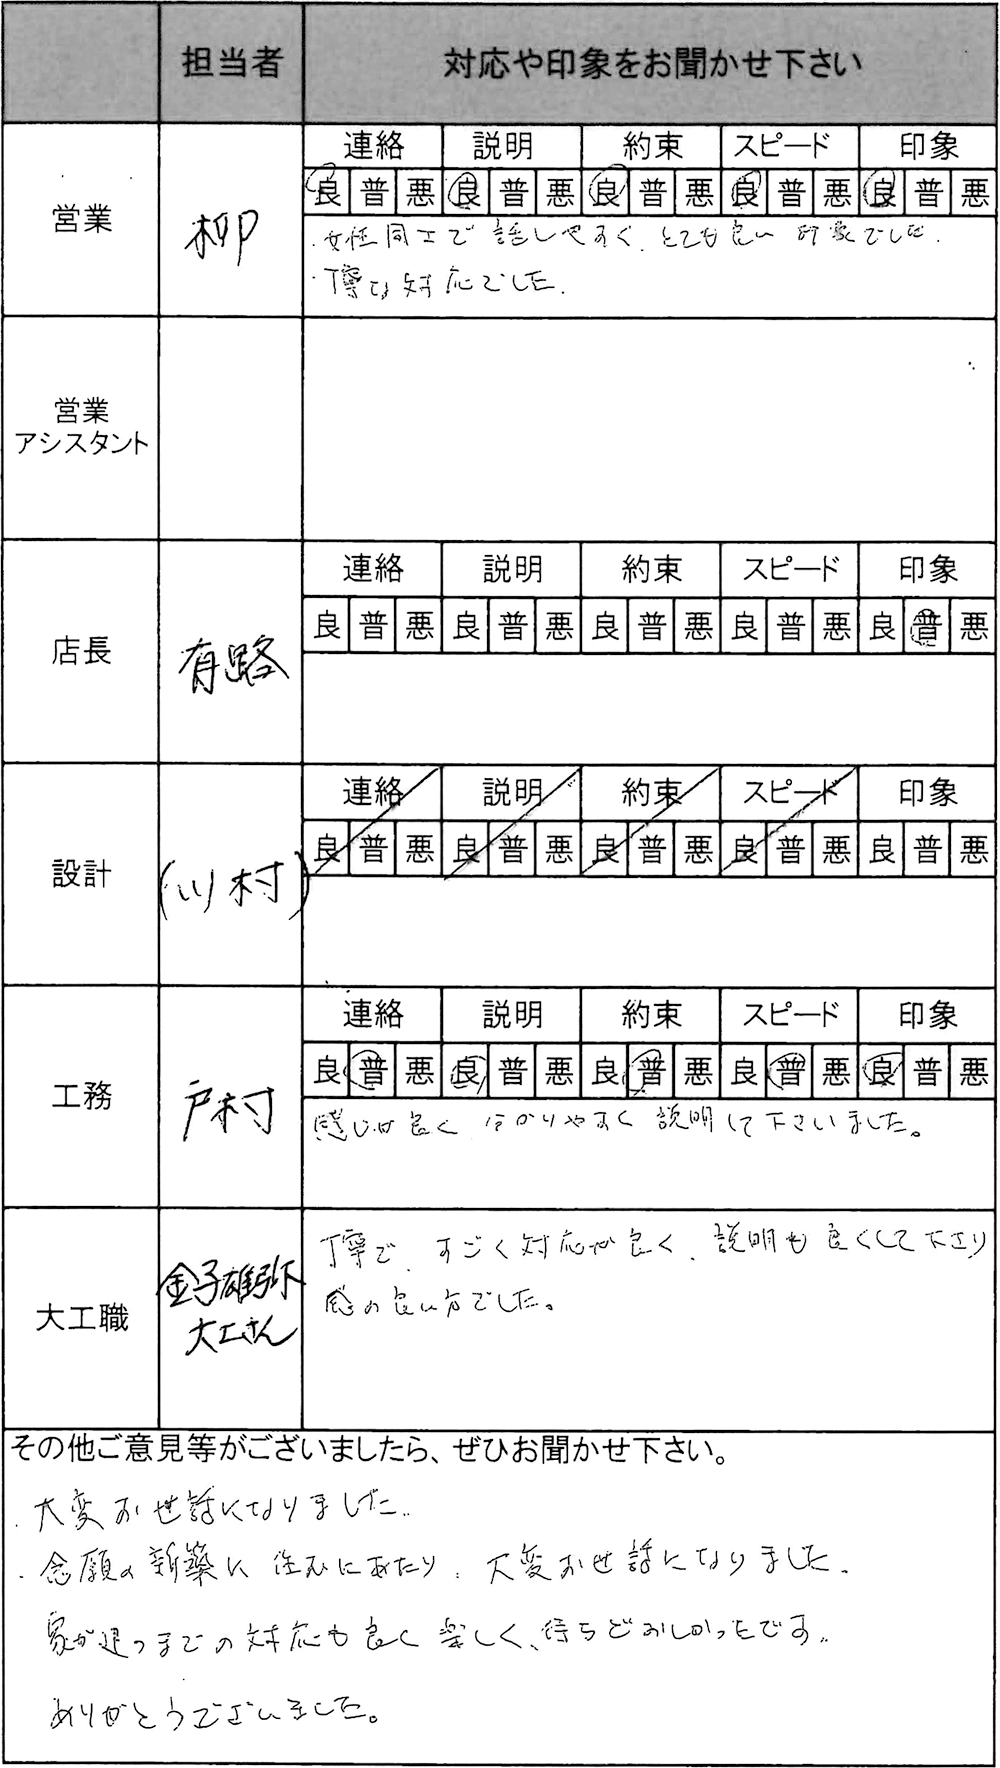 担当者 対応や印象をお聞かせ下さい
連絡 説明 約束 スピード 印象
良 普 悪 良 普 悪 良 普 悪 良 普 悪 良 普 悪
営業 柳
・女性同士で話しやすく、とても良い印象でした。
・丁寧な対応でした。
営業
アシスタント
連絡 説明 約束 スピード 印象
良 普 悪 良 普 悪 良 普 悪 良 普 悪 良 普 悪
店長 有路
連絡 説明 約束 スピード 印象
良 普 悪 良 普 悪 良 普 悪 良 普 悪 良 普 悪
設計 (川村)
連絡 説明 約束 スピード 印象
良 普 悪 良 普 悪 良 普 悪 良 普 悪 良 普 悪
工務 戸村
感じが良く 分かりやすく 説明して下さいました。
丁寧で、すごく対応が良く、説明も良くして下さり
大工職 金子雄弥
大工さん
感の良い方でした。
その他ご意見等がございましたら、ぜひお聞かせ下さい。
・大変お世話になりました。
・念願の新築に住むにあたり、大変お世話になりました。
家が建つまでの対応も良く楽しく、待ちどおしかったです。
ありがとうございました。